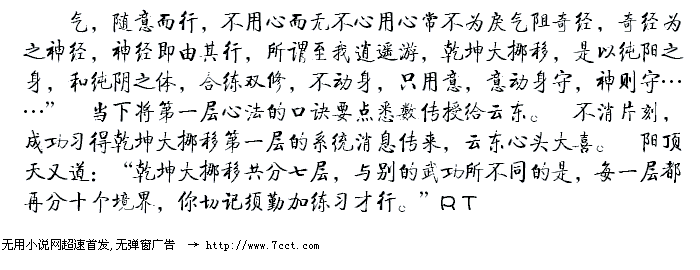 气，随意而行，不用心而无不心用心常不为戾气阻奇经，奇经为
之神经，神经即由其行，所谓至我逍遥游，乾坤大挪移，是以纯阳之
身，和纯阴之体，合练双修，不动身，只用意，意动身守，神则守……
…” 当下将第一层心法的口诀要点悉数传授给云东。 不消片刻，
成功习得乾坤大挪移第一层的系统消息传来，云东心头大喜。 阳顶
天又道：“乾坤大挪移共分七层，与别的武功所不同的是，每一层都
再分十个境界，你切记须勤加练习才行。”RT
无用小说网超速首发,无弹窗广告 → http://www.7cct.com